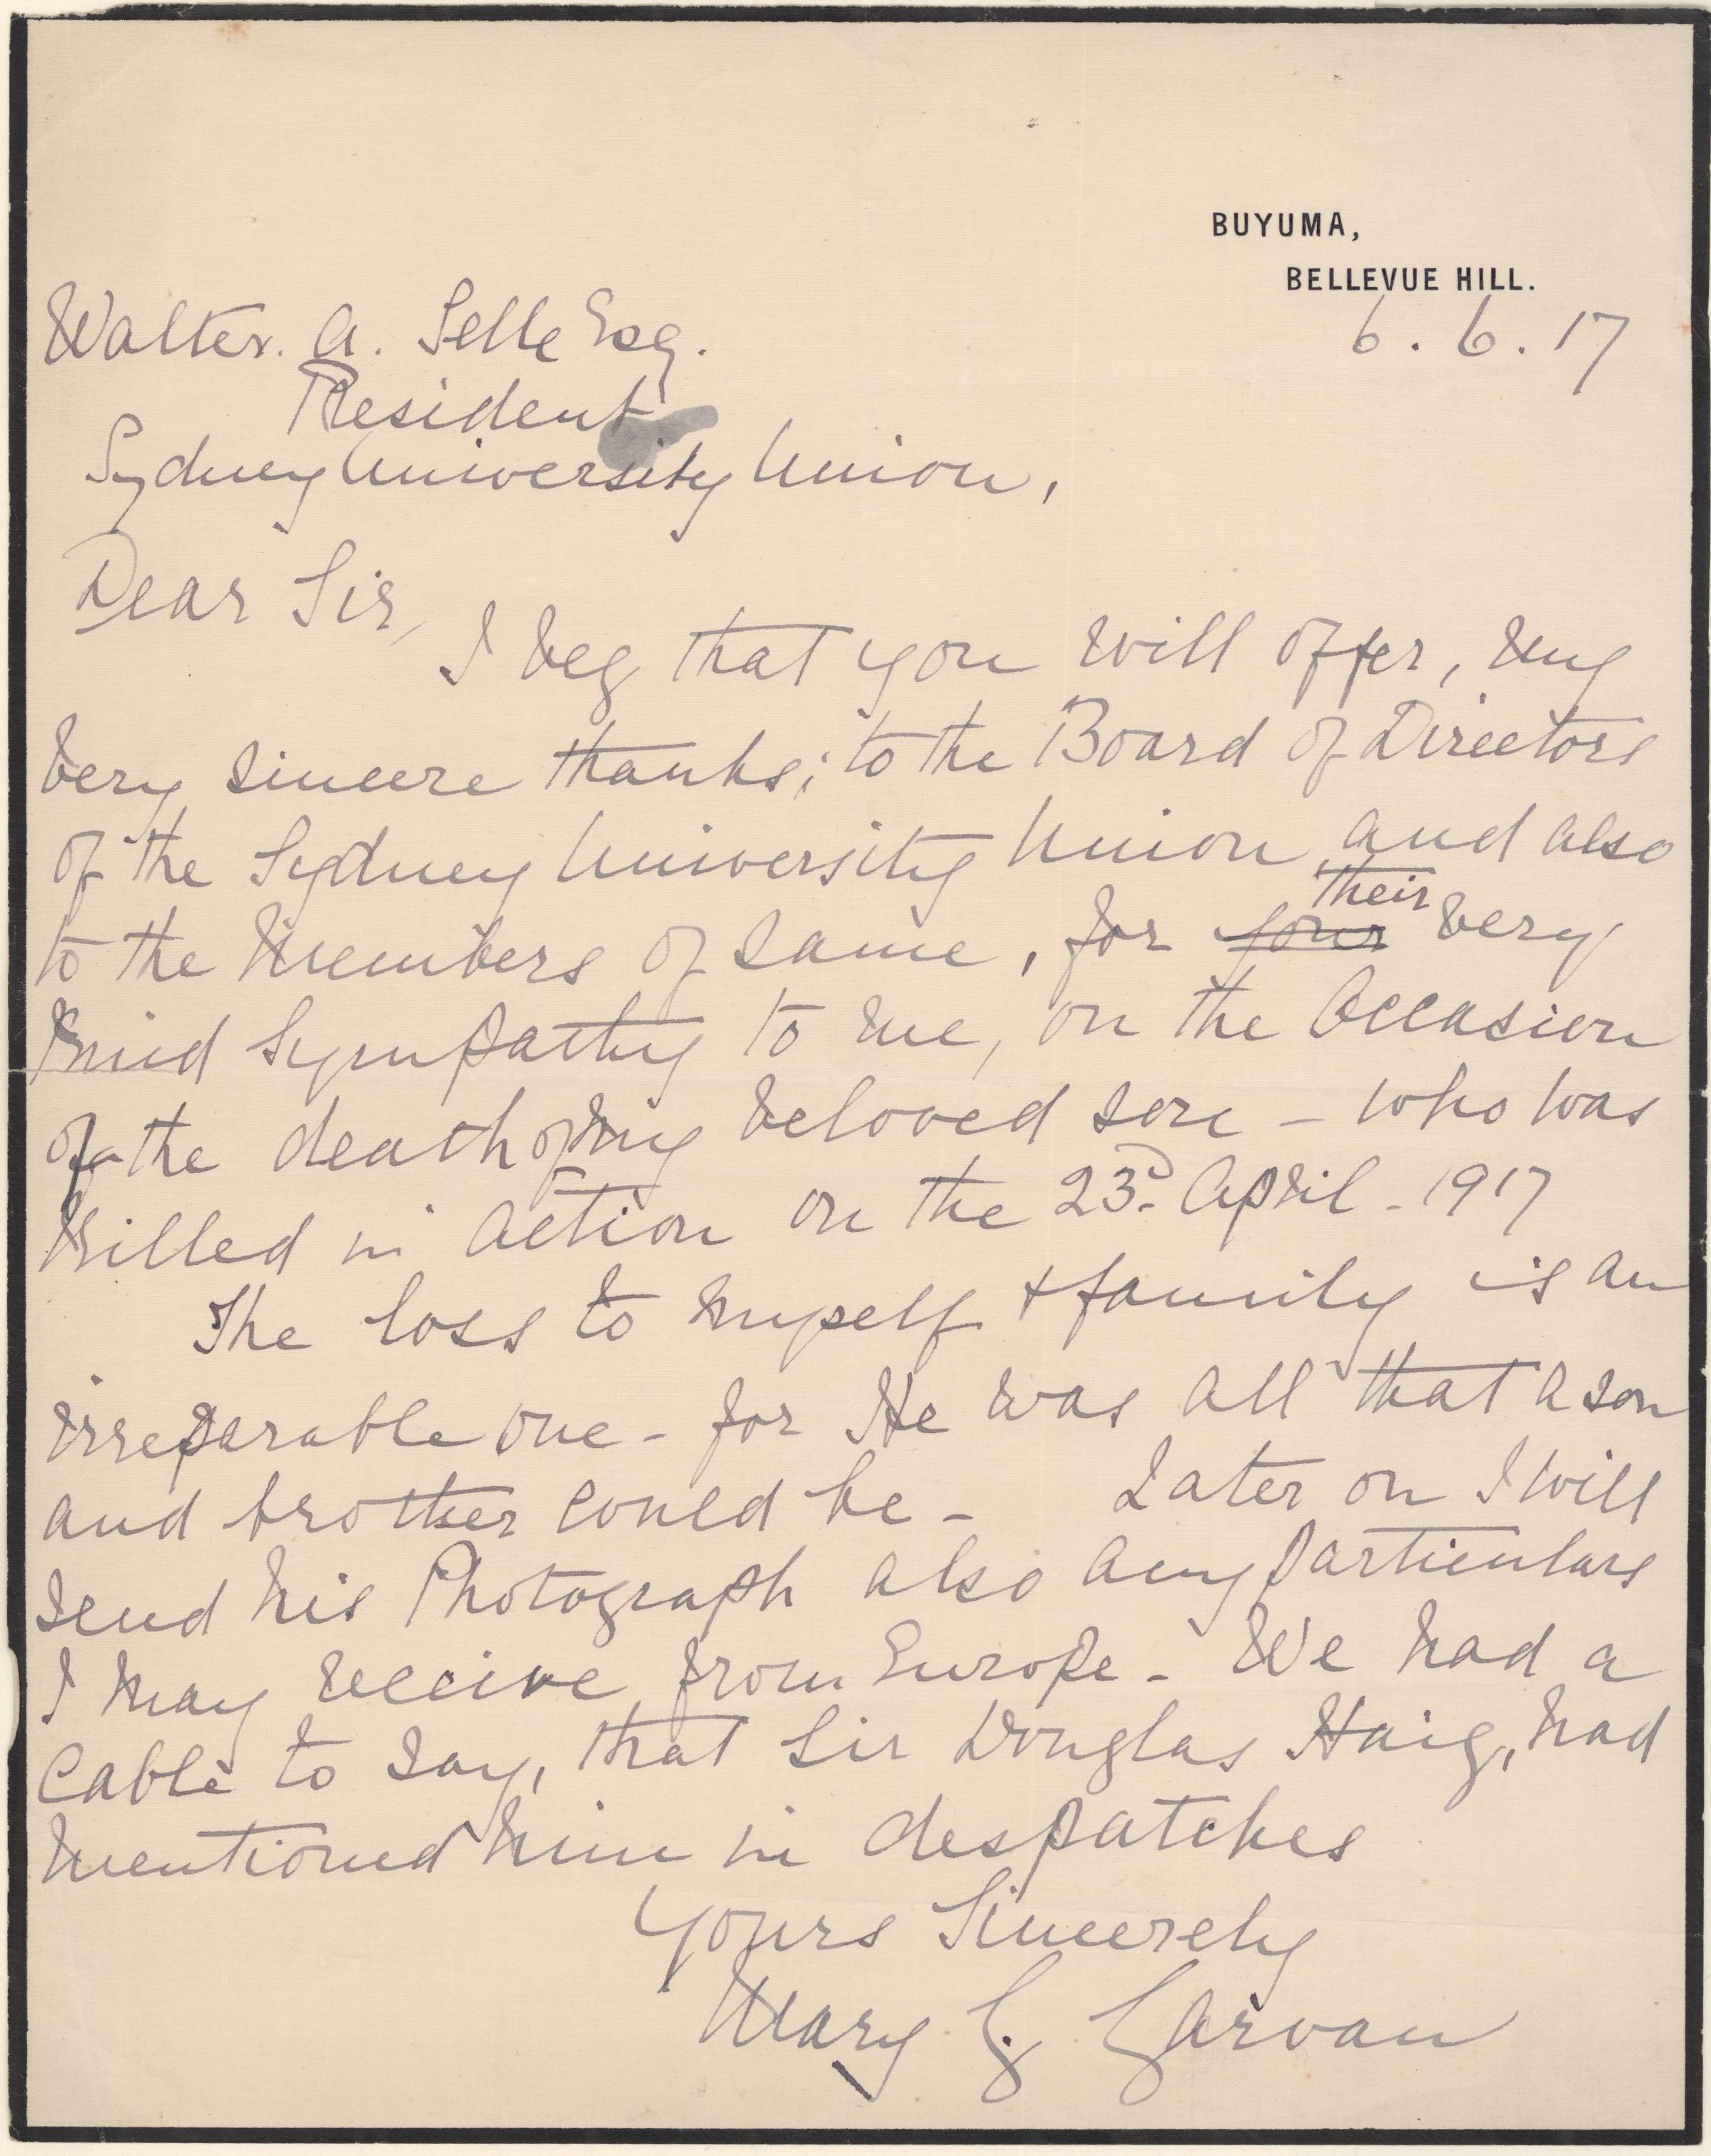 BUYUMA,
BELLEVUE HILL.
6. 6. 17
Walter. A. Selle Esq.
President
Sydney University Union,
Dear Sir,
I beg that you will offer, my
very sincere thanks; to the Board of Directors
of the Sydney University Union, and also
their
to the Members of same, for your very
kind sympathy to me, on the occasion
of the death of my beloved son - who was
killed in action on the 23rd April - 1917
The loss to myself & family is an
irreparable one - for He was all that a son
and brother could be - Later on I will
send his Photograph also any particulars
I may receive from Europe - We had a
Cable to say, that Sir Douglas Haig, had
mentioned him in despatches
Yours Sincerely
Mary G. Garvan